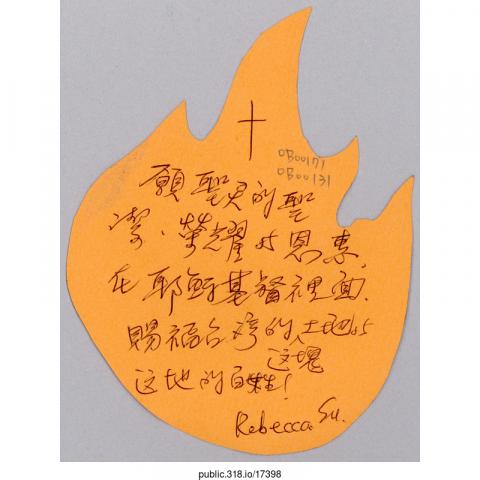 十
OB00171
OB00131
願聖灵的聖
潔、榮耀与恩惠,
在耶穌基督裡面,
賜福台湾的人土地与
這塊
這地的百姓!
Rebecca Su.
public.318.io/17398